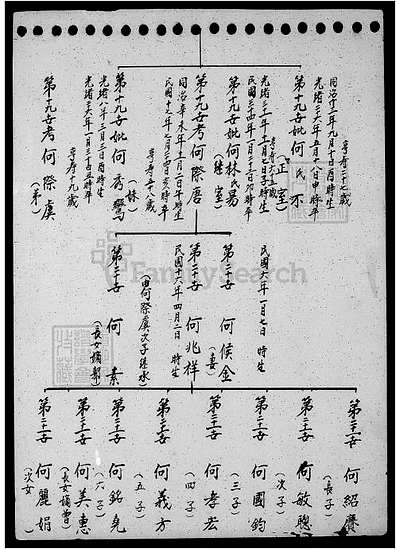 同治十三年九月十日酉時生
光緒二六年五月十八日申時卒
享壽二十七歲
第十九世妣何氏不
(正室)
光緒三十年十二月七日子時生
民國三四年一月二十三日卯時卒
第十九世妣何林氏芴
(継室)
第十九世考何際唐
同治辛未年十一月二日午時生
民國十一年七月二十日亥時卒
享壽五十八歲
第十九世妣何為鸞
(妹)
光緒八年二月三日丑時生
光緒二六年一月三十日丑時卒
享壽十九歲
第十九世考何際虞
(弟)
民國六年一月七日 時生
第二十世 何侯金
(妻)
第二十世 何兆祥
民國十六年四月二日 時生
(由何際虞次子继承)
第二十世 何素
(長女嫡鄭)
第二一世 何紹賡
(長子)
第二一世 何敏聰
(次子)
第二一世 何國鈞
(三子)
第二一世 何孝宏
(四子)
第二一世 何義方
(五子)
第二一世 何銘堯
(六子)
第二一世 何美惠
(長女嫡曾)
第二一世 何麗娟
(次女)
FamilySearch